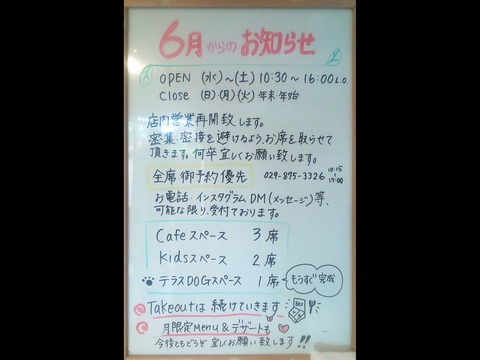 6月からのお知らせ
OPEN (水)～(土) 10:30～16:00 L.O.
Close (日)・(月)・(火) 年末・年始
店内営業再開致します。
密集・密接を避けるよう、お席を取らせて
頂きます。何卒宜しくお願い致します。
全席御予約優先 029-875-3326 10:15～17:00
お電話・インスタグラムDM(メッセージ)等、
可能な限り、受付ております。
Cafeスペース 3席
Kidsスペース 2席
テラスDOGスペース 1席 もうすぐ完成
Takeoutは続けていきます
月限定Menu&デザートも
今後ともどうぞ宜しくお願い致します!!